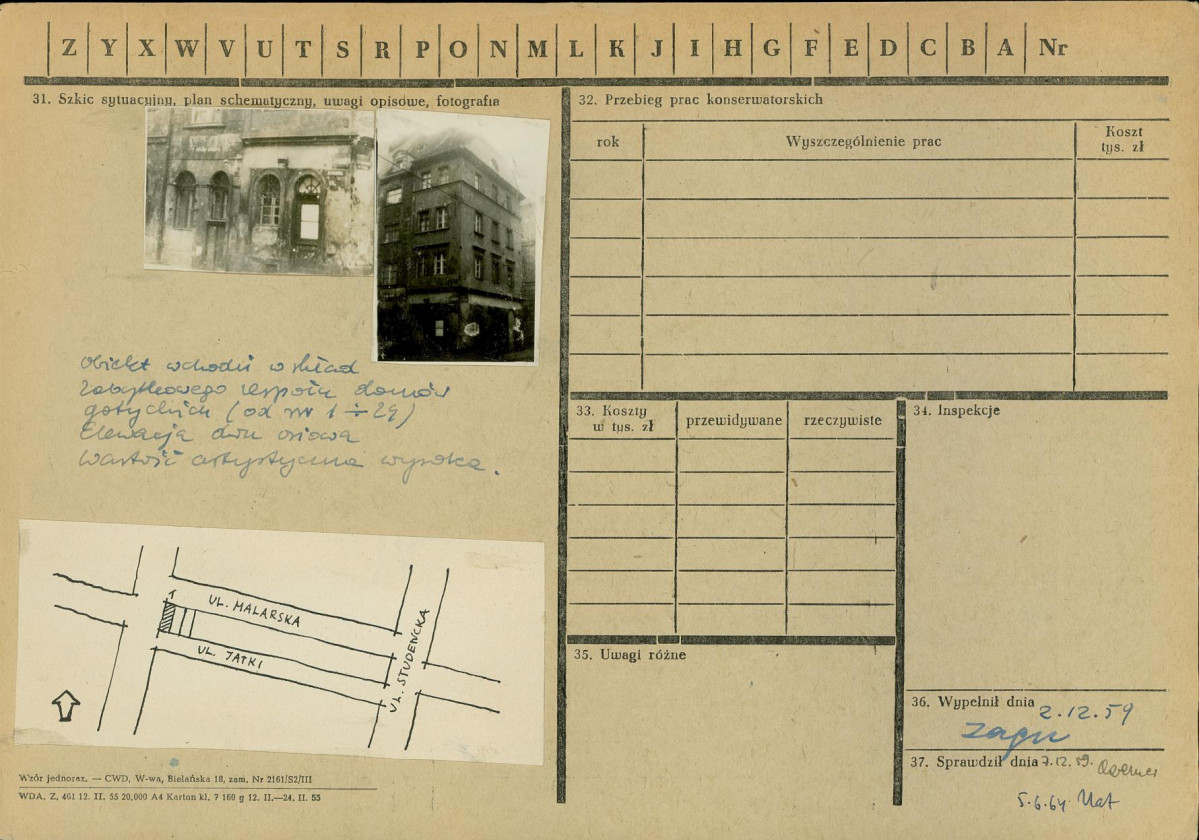 Z Y X W V U T S R P O N M L K J I H G F E D C B A Nr
31. Szkic sytuacyjny, plan schematyczny, uwagi opisowe, fotografia
Obiekt wchodzi w skład
zabytkowego zespołu domów
gotyckich (od nr 1 ÷ 29)
Elewacja dwu osiowa
Wartość artystyczna wysoka.
1
UL. MALARSKA
UL. JATKI
UL. STUDENCKA
Wzór jednoraz. — CWD, W-wa, Bielańska 18, zam. Nr 2161/S2/III
WDA. Z. 461 12. II. 55 20,000 A4 Karton kl. 7 160 g 12. II.—24. II. 55
32. Przebieg prac konserwatorskich
rok
Wyszczególnienie prac
Koszt
tys. zł
33. Koszty
w tys. zł
przewidywane
rzeczywiste
34. Inspekcje
35. Uwagi różne
36. Wypełnił dnia 2.12.59
37. Sprawdził dnia 7.12.59.
5.6.64.